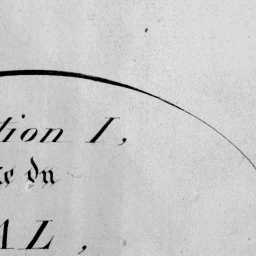 tion I,
du
AL,